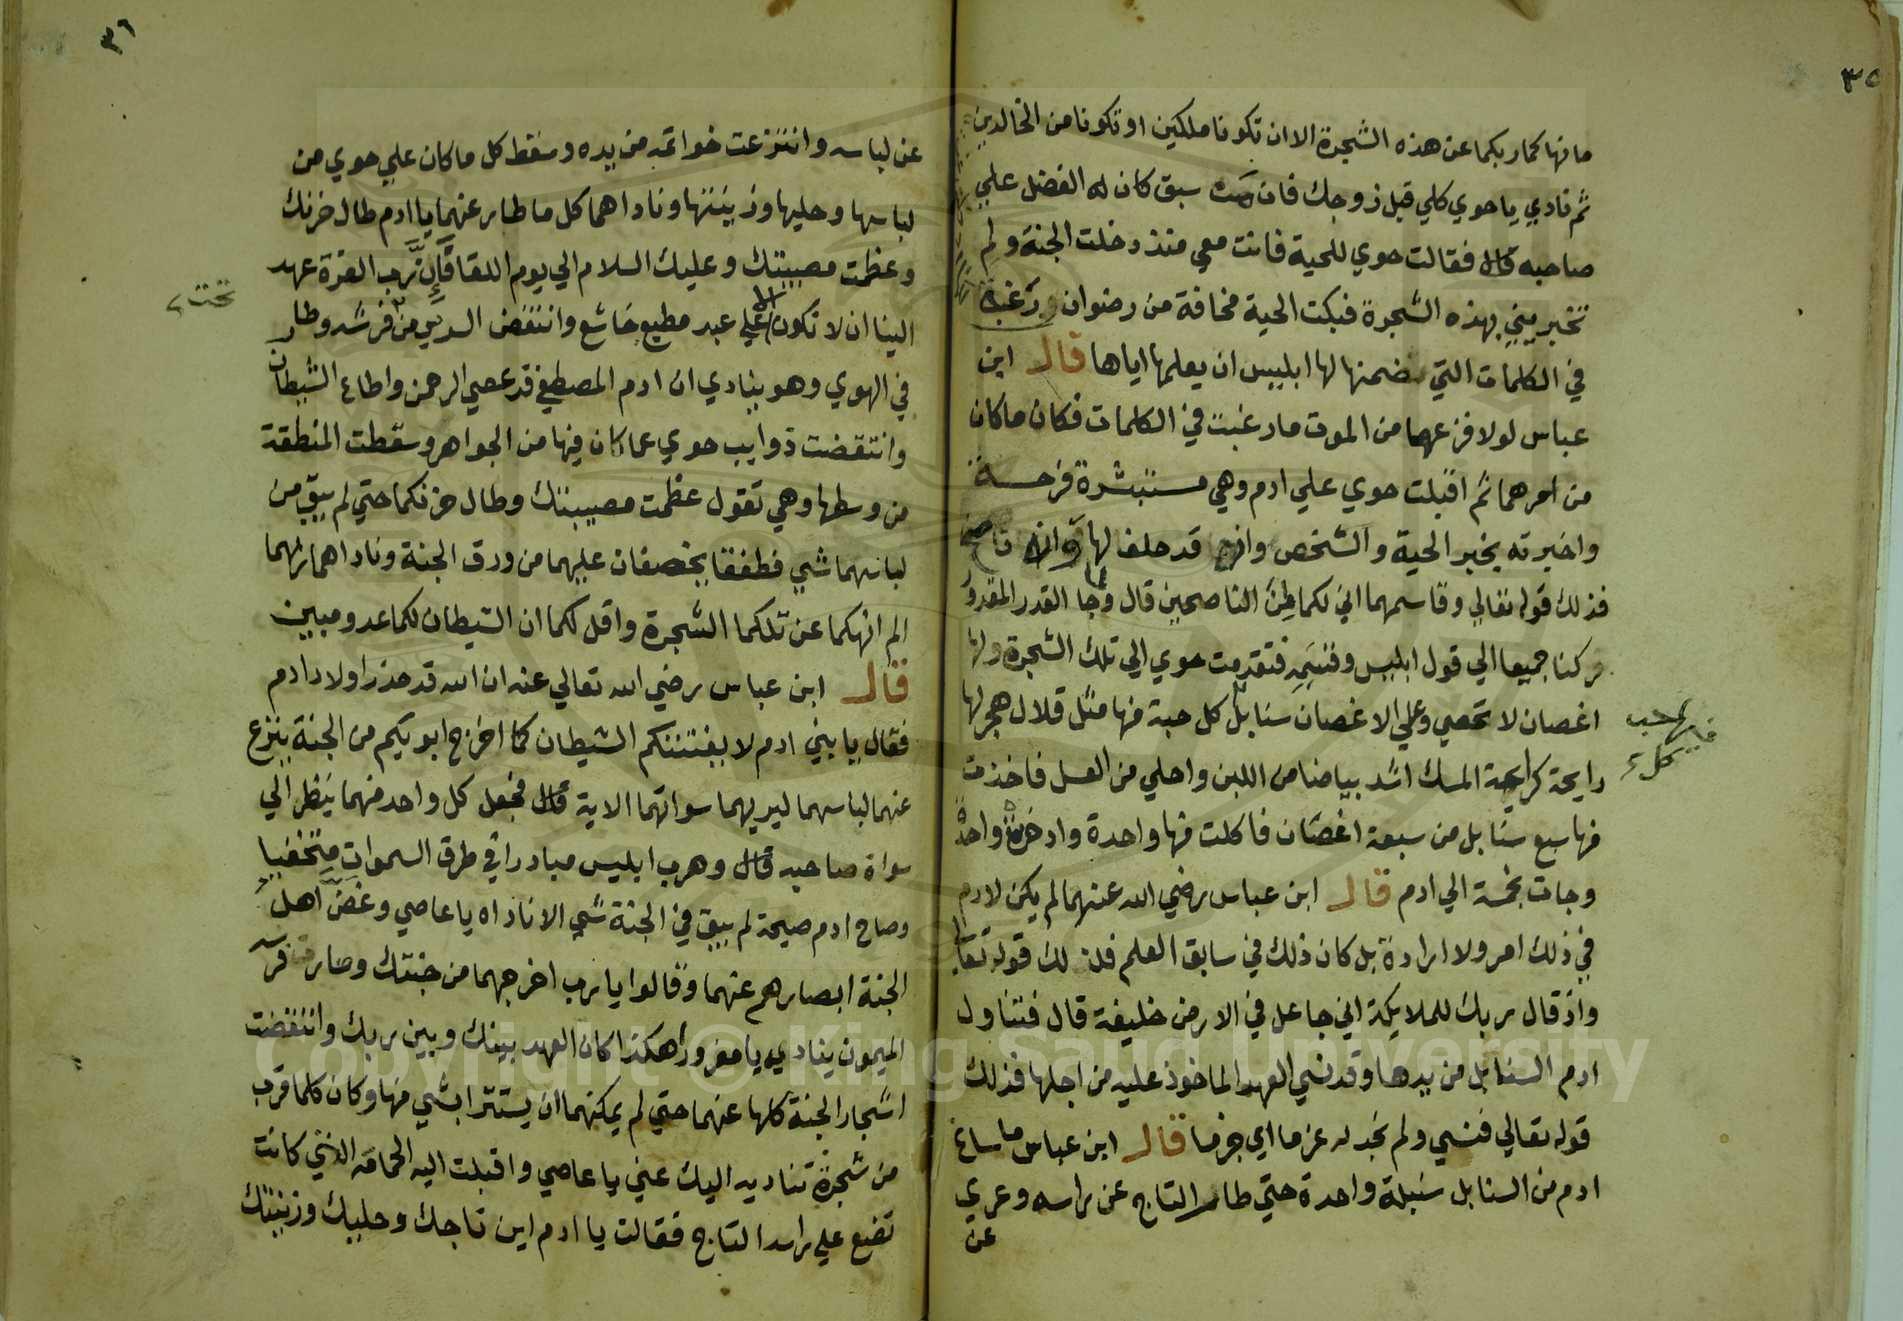 ٣٥
ما نهاكما ربكما عن هذه الشجرة الا ان تكونا ملكين او تكونا من الخالدين
ثم نادي يا حوي كلي قبل زوجك فان من سبق كان له الفضل علي
صاحبه قال فقالت حوي للحية فانت معي منذ دخلت الجنة ولم
تخبريني بهذه الشجرة فبكت الحية مخافة من رضوان ورغبة
في الكلمات التي ضمنها لها ابليس ان يعلمها اياها قال ابن
عباس لولا فزعهما من الموت ما رغبت في الكلمات فكان ما كان
من امرهما ثم اقبلت حوي علي ادم وهي مستبشرة فرحة
واخبرته بخبر الحية والشخص وانه قد حلف لها وانه ناصح
فذلك قوله تعالي وقاسمهما اني لكما لمن الناصحين قال وجا القدر المقدور
وركنا جميعا الي قول ابليس وقسمه فتقدمت حوي الي تلك الشجرة ولها
اغصان لا تحصي وعلي الاغصان سنابل كل حبة منها مثل قلال هجر لها
رايحة كرايحة المسك اشد بياضا من اللبن واحلي من العسل فاخذت
منها سبع سنابل من سبعة اغصان فاكلت منها واحدة وادخرت واحدة
وجات بخمسة الي ادم قال ابن عباس رضي الله عنهما لم يكن لادم
في ذلك امر ولا ارادة بل كان ذلك في سابق العلم فذلك قوله تعالي
واذ قال ربك للملايكة اني جاعل في الارض خليفة قال فتناول
ادم السنابل من يدها وقد نسي العهد الماخوذ عليه من اجلها فذلك
قوله تعالي فنسي ولم نجد له عزما اي جزما قال ابن عباس ما ساغ
ادم من السنابل سنبلة واحدة حتي طار التاج عن راسه وعري
عن
حب
كل
٣٦
عن لباسه وانتزعت خواتمه من يده وسقط كل ما كان علي حوي من
لباسها وحليها وزينتها وناداهما كل ما طار عنهما يا ادم طال حزنك
وعظمت مصيبتك وعليك السلام الي يوم اللقا فان رب العزة عهد
الينا ان لا نكون الا علي عبد مطيع خاشع وانتفض السرير من فرشه وطار
في الهوي وهو ينادي ان ادم المصطفي قد عصي الرحمن واطاع الشيطان
وانتقضت ذوايب حوي عما كان فيها من الجواهر وسقطت المنطقة
من وسطها وهي تقول عظمت مصيبتك وطال حزنكما حتي لم يبق من
لباسهما شي فطفقا يخصفان عليهما من ورق الجنة وناداهما ربهما
الم انهكما عن تلكما الشجرة واقل لكما ان الشيطان لكما عدو مبين
قال ابن عباس رضي الله تعالي عنه ان الله قد حذر اولاد ادم
فقال يا بني ادم لا يفتننكم الشيطان كما اخرج ابويكم من الجنة ينزع
عنهما لباسهما ليريهما سواتهما الاية قال فجعل كل واحد منهما ينظر الي
سواة صاحبه قال وهرب ابليس مبادرا في طرق السموات متخفيا
وصاح ادم صيحة لم يبق في الجنة شي الا ناداه يا عاصي وغض اهل
الجنة ابصارهم عنهما وقالوا يا رب اخرجهما من جنتك وصار فرس
الميمون ينادي يا مغرور اهكذا كان العهد بينك وبين ربك وانتفضت
اشجار الجنة كلها عنهما حتي لم يمكنهما ان يستترا بشي منها وكان كلما قرب
من شجرة تناديه اليك عني يا عاصي واقبلت اليه الحمامة التي كانت
تضع علي راسه التاج فقالت يا ادم اين تاجك وحليك وزينتك
تحت
Copyright © King Saud University